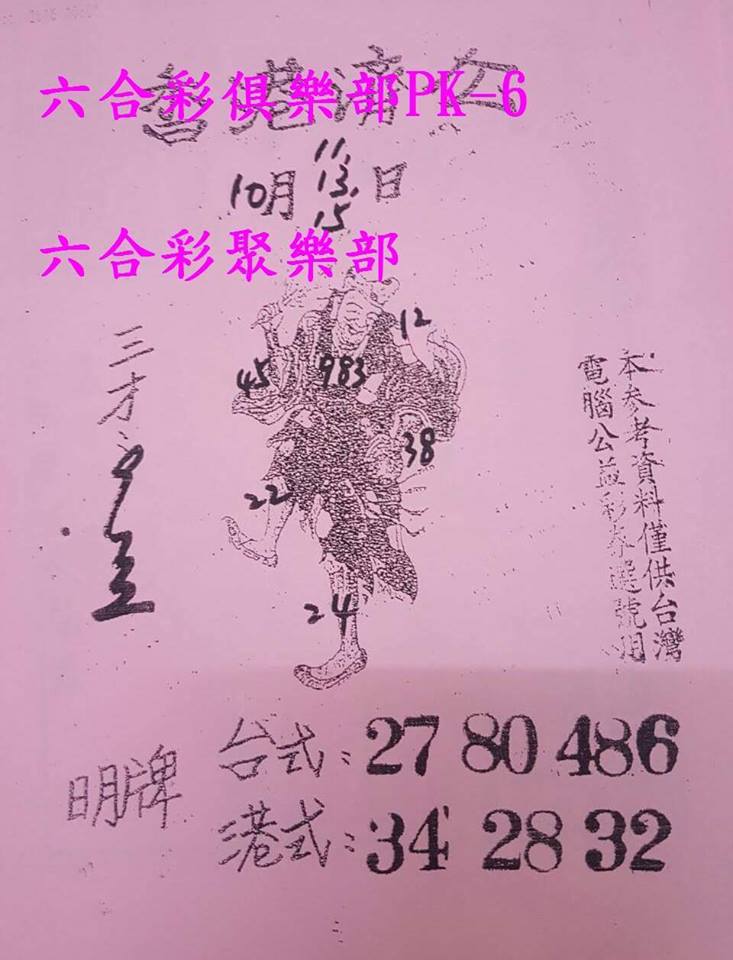 六合彩俱樂部PK-6
香港濟公
11.
10月 13. 日
15
六合彩聚樂部
12
45
983
38
22
24
三才
本参考資料僅供台灣
電腦公益彩券選號用
明牌
台式：27 80 486
港式：34 28 32